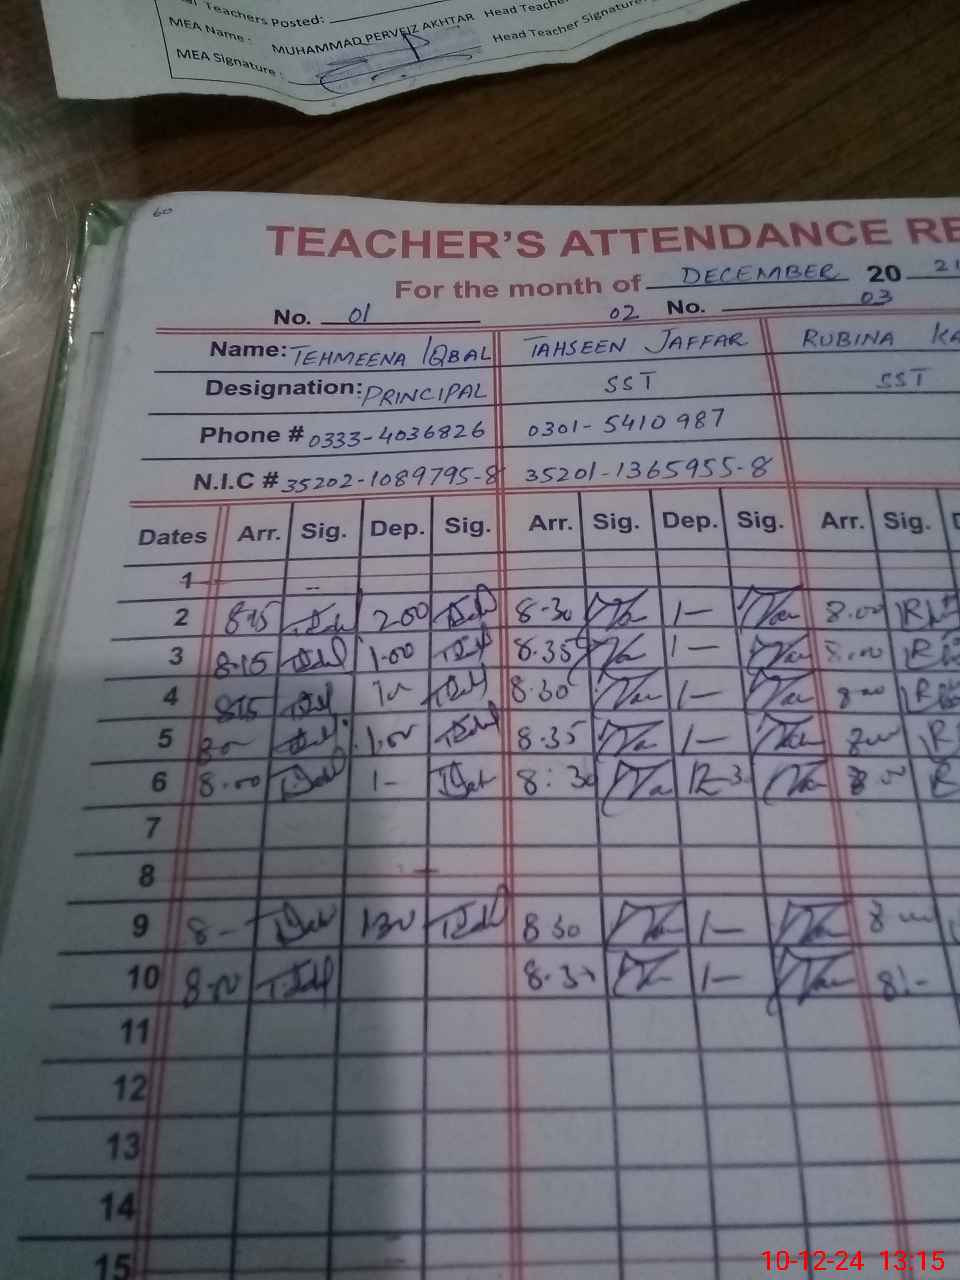 Teachers Posted:
MEA Name : MUHAMMAD PERVEIZ AKHTAR Head Teacher
MEA Signature : Head Teacher Signature:
60
TEACHER'S ATTENDANCE RE
For the month of DECEMBER 20
No. 01 02 No. 03
Name: TEHMEENA IQBAL TAHSEEN JAFFAR RUBINA KA
Designation: PRINCIPAL SST SST
Phone # 0333-4036826 0301-5410987
N.I.C # 35202-1089795-8 35201-1365955-8
Dates Arr. Sig. Dep. Sig. Arr. Sig. Dep. Sig. Arr. Sig. D
1
2 8.15 2.00 8.30 1- 8.00
3 8.15 1.00 8.35 1- 8.00
4 8.15 8.30 1- 8.00
5 1.00 8.35 1-
6 8.00 1- 8:30 12.3 8.00
7
8
9 8- 130 8 30 1- 8
10 8.00 8.30 1- 8:-
11
12
13
14
15
10-12-24 13:15